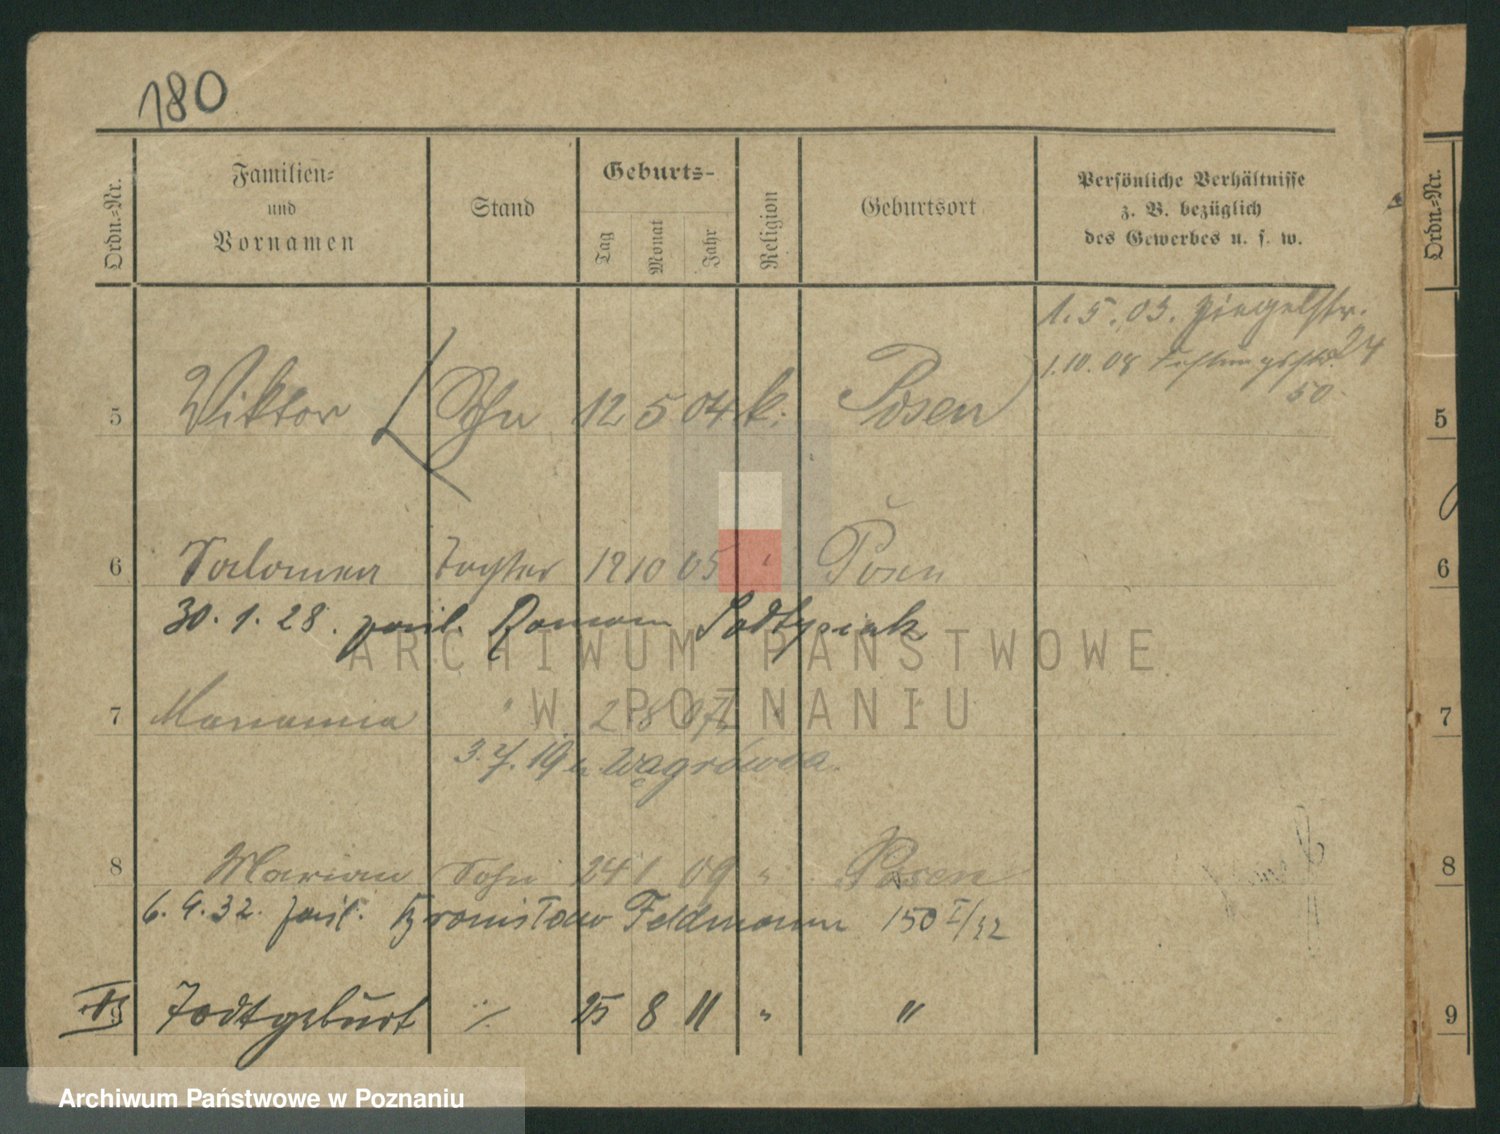 180
Ordn.-Nr.
Familien-
und
Vornamen
Stand
Geburts-
Tag
Monat
Jahr
Religion
Geburtsort
Persönliche Verhältnisse
z. B. bezüglich
des Gewerbes u. s. w.
Ordn.-Nr.
1.5.03. Ziegelstr.
24
1.10.08
50
5 Viktor Sohn 12 5 04 k. Posen 5
6 Salomea Tochter 12 10 05 " Posen 6
30.1.28. Roman
ARCHIWUM PAŃSTWOWE
W POZNANIU
7 Marianna " 2 8 07 " " 7
3.7.19 n Wągrówca
8 Marian Sohn 24 1 09 " Posen 8
6.9.32. Bronisław Feldmann 150 I/32
9 Todtgeburt ./. 25 8 11 " " 9
Archiwum Państwowe w Poznaniu